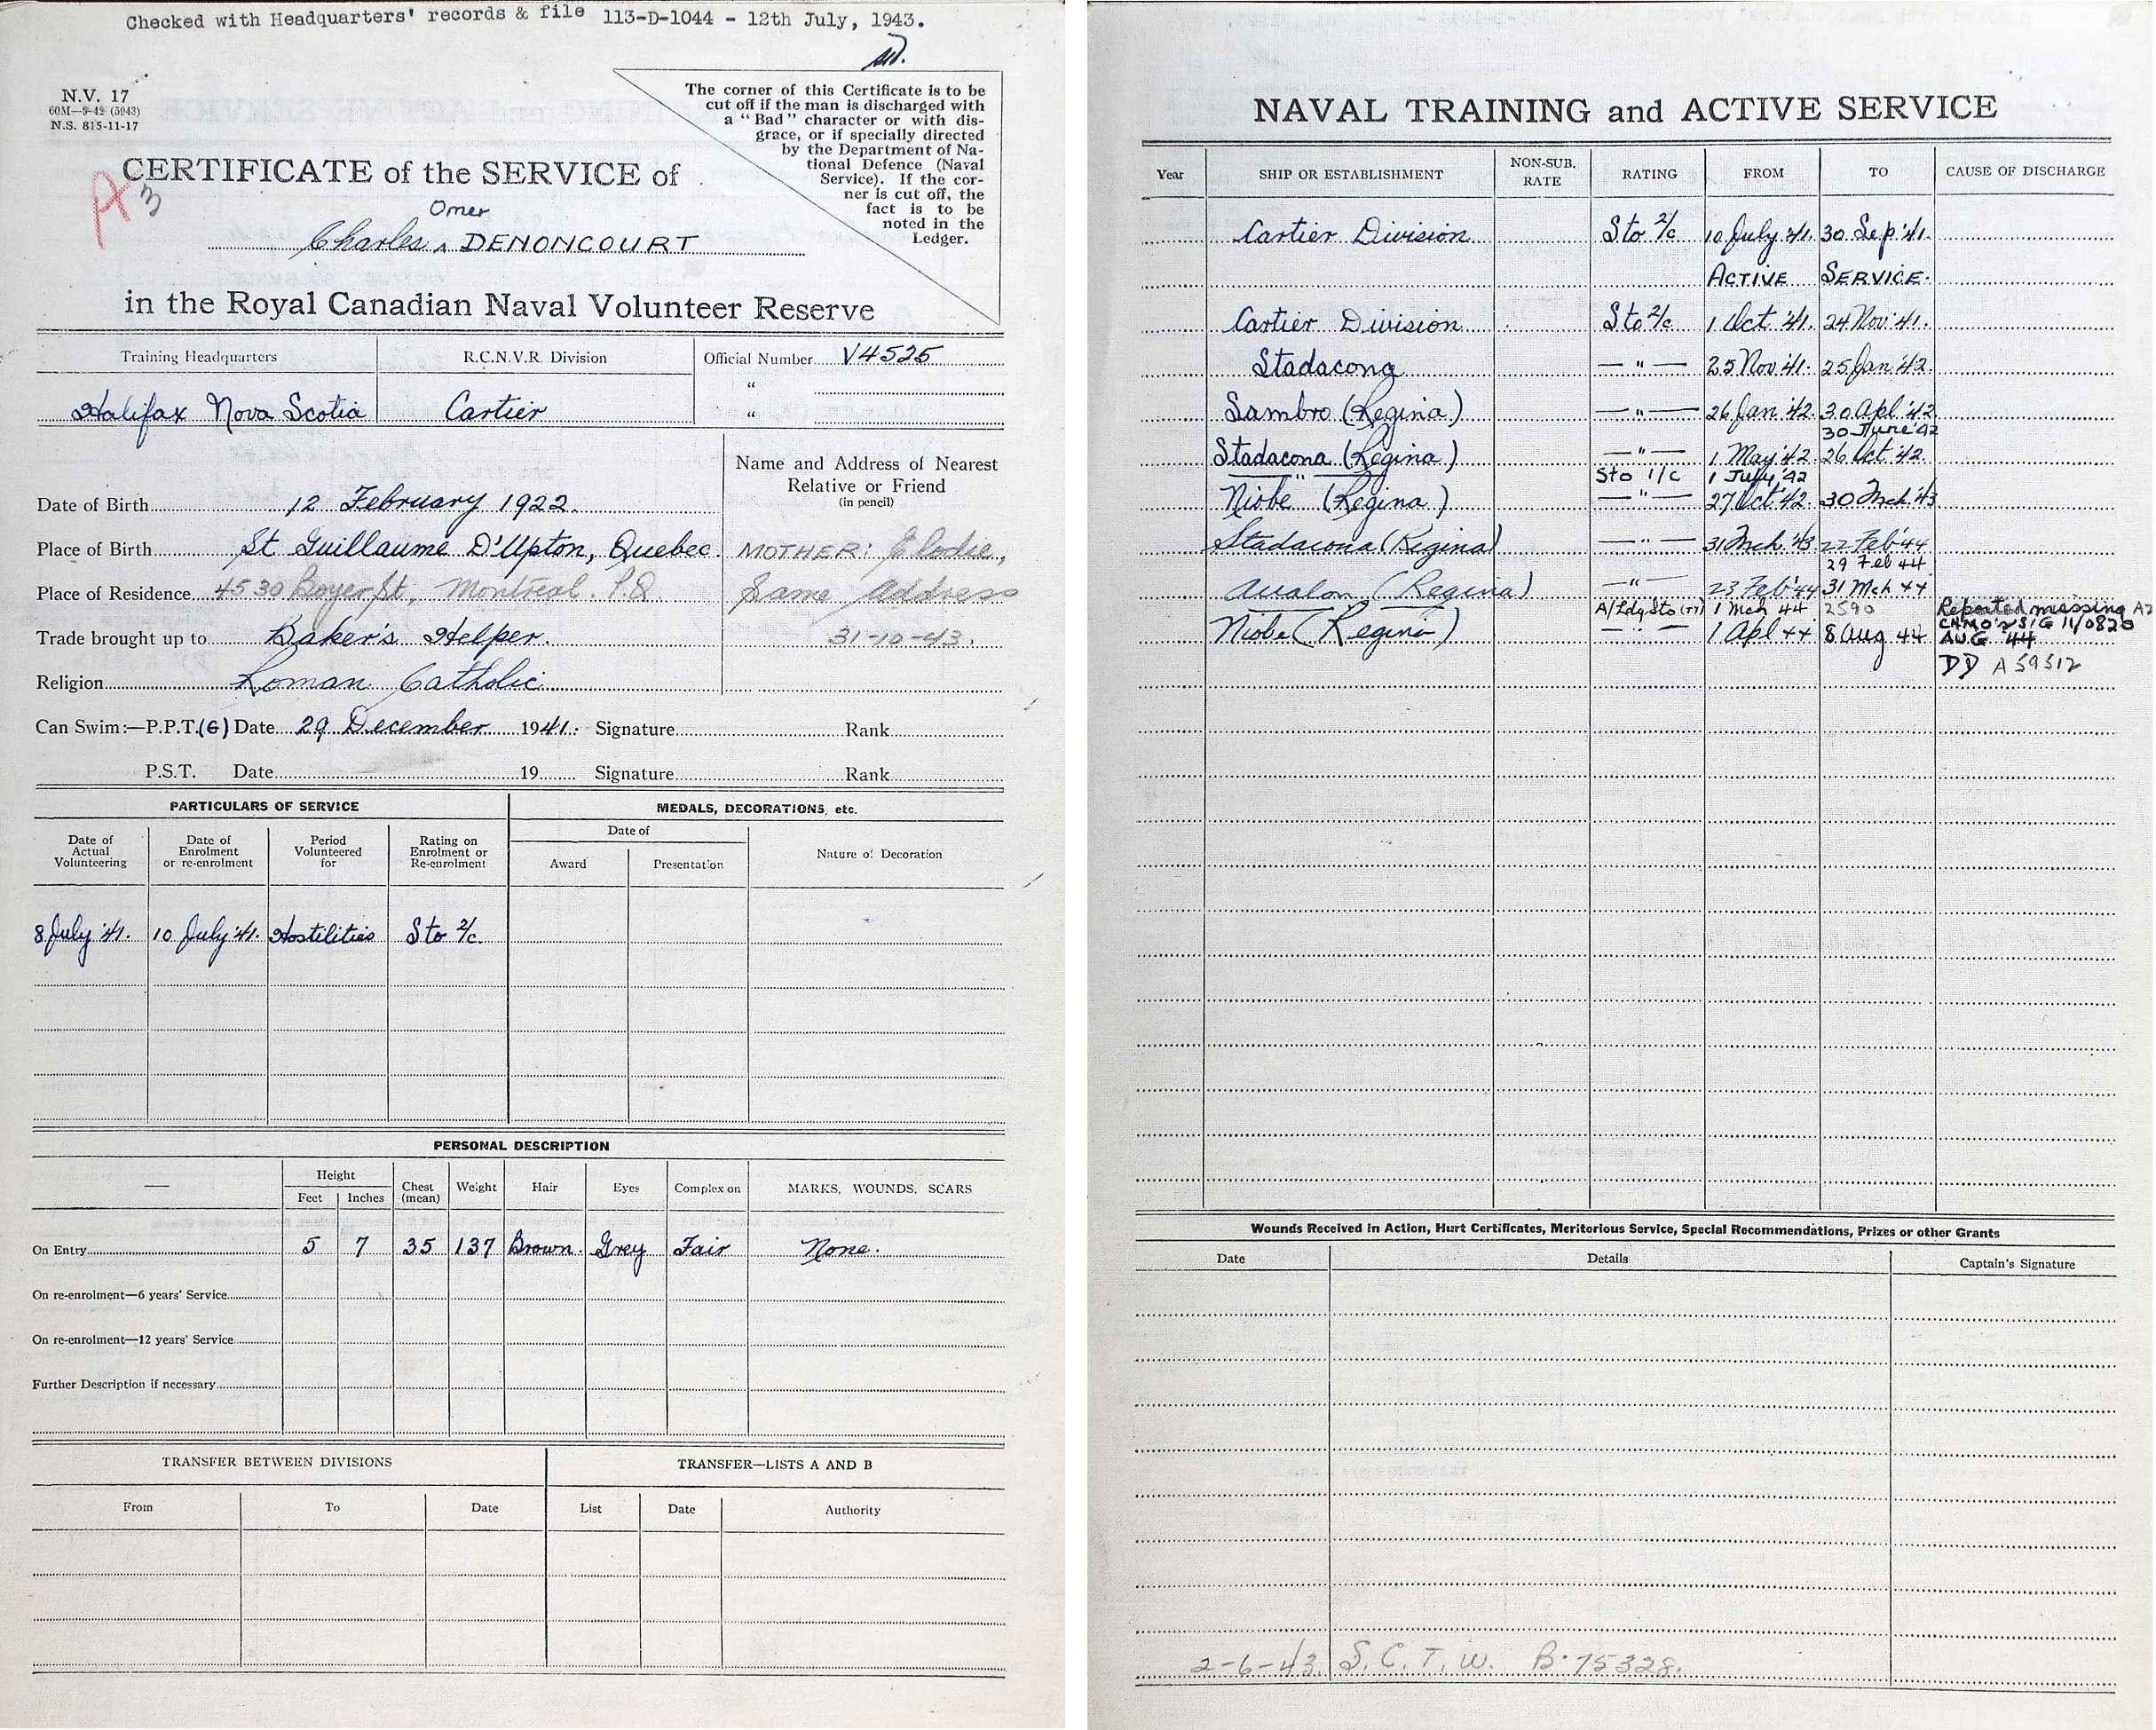 Checked with Headquarters' records & file 113-D-1044 - 12th July, 1943.
N.V. 17
60M—9-42 (5943)
N.S. 815-11-17
The corner of this Certificate is to be
cut off if the man is discharged with
a "Bad" character or with dis-
grace, or if specially directed
by the Department of Na-
tional Defence (Naval
Service). If the cor-
ner is cut off, the
fact is to be
noted in the
Ledger.
CERTIFICATE of the SERVICE of
A 3
Omer
Charles ^ DENONCOURT
in the Royal Canadian Naval Volunteer Reserve
Training Headquarters R.C.N.V.R. Division Official Number V4525
"
Halifax Nova Scotia Cartier "
Name and Address of Nearest
Relative or Friend
(in pencil)
Date of Birth 12 February 1922.
Place of Birth St Guillaume D'Upton, Quebec. MOTHER: Elodie,
Place of Residence 4530 Boyer St, Montreal. P.Q. Same Address
Trade brought up to Baker's Helper. 31-10-43.
Religion Roman Catholic
Can Swim:—P.P.T.(G) Date 29 December 1941. Signature Rank
P.S.T. Date 19 Signature Rank
PARTICULARS OF SERVICE MEDALS, DECORATIONS, etc.
Date of Actual Volunteering Date of Enrolment or re-enrolment Period Volunteered for Rating on Enrolment or Re-enrolment Date of Award Presentation Nature of Decoration
8 July '41. 10 July '41. Hostilities Sto 2/c.
PERSONAL DESCRIPTION
— Height Feet Inches Chest (mean) Weight Hair Eyes Complexion MARKS, WOUNDS, SCARS
On Entry 5 7 35 137 Brown. Grey Fair None.
On re-enrolment—6 years' Service
On re-enrolment—12 years' Service
Further Description if necessary
TRANSFER BETWEEN DIVISIONS TRANSFER—LISTS A AND B
From To Date List Date Authority
NAVAL TRAINING and ACTIVE SERVICE
Year SHIP OR ESTABLISHMENT NON-SUB. RATE RATING FROM TO CAUSE OF DISCHARGE
Cartier Division Sto 2/c 10 July '41. 30 Sep '41.
ACTIVE SERVICE.
Cartier Division Sto 2/c 1 Oct '41. 24 Nov '41.
Stadacona — " — 25 Nov '41. 25 Jan '42.
Sambro (Regina) — " — 26 Jan '42. 30 Apl '42.
30 June '42
Stadacona (Regina) — " — 1 May '42. 26 Oct '42.
— " — Sto 1/c 1 July '42
Niobe (Regina) — " — 27 Oct '42. 30 Mch '43
Stadacona (Regina) — " — 31 Mch '43 22 Feb '44
29 Feb 44
Avalon (Regina) — " — 23 Feb '44 31 Mch 44
A/Ldg Sto (TY) 1 Mch 44 2590 Reported missing A2
Niobe (Regina) — " — 1 Apl 44 8 Aug 44 CNMO'S SIG 11/0820
AUG '44
DD A 59512
Wounds Received in Action, Hurt Certificates, Meritorious Service, Special Recommendations, Prizes or other Grants
Date Details Captain's Signature
2-6-43. S.C.T.W. B.75328.